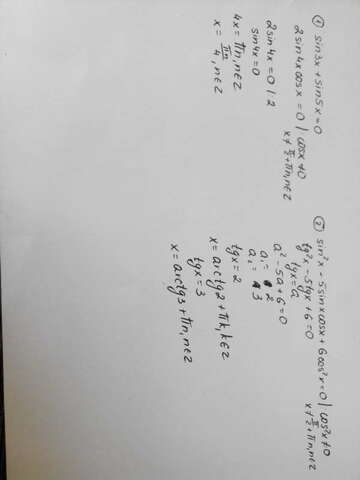 ① sin3x + sin5x = 0
2sin4xcosx = 0 | cosx ≠ 0
x ≠ π/2 + πn, n∈z
2sin4x = 0 | 2
sin4x = 0
4x = πn, n∈z
x = πn/4, n∈z
② sin²x - 5sinxcosx + 6cos²x = 0 | cos²x ≠ 0
x ≠ π/2 + πn, n∈z
tg²x - 5tgx + 6 = 0
tgx = a
a² - 5a + 6 = 0
a₁ = 2
a₂ = 3
tgx = 2
x = arctg2 + πk, k∈z
tgx = 3
x = arctg3 + πn, n∈z